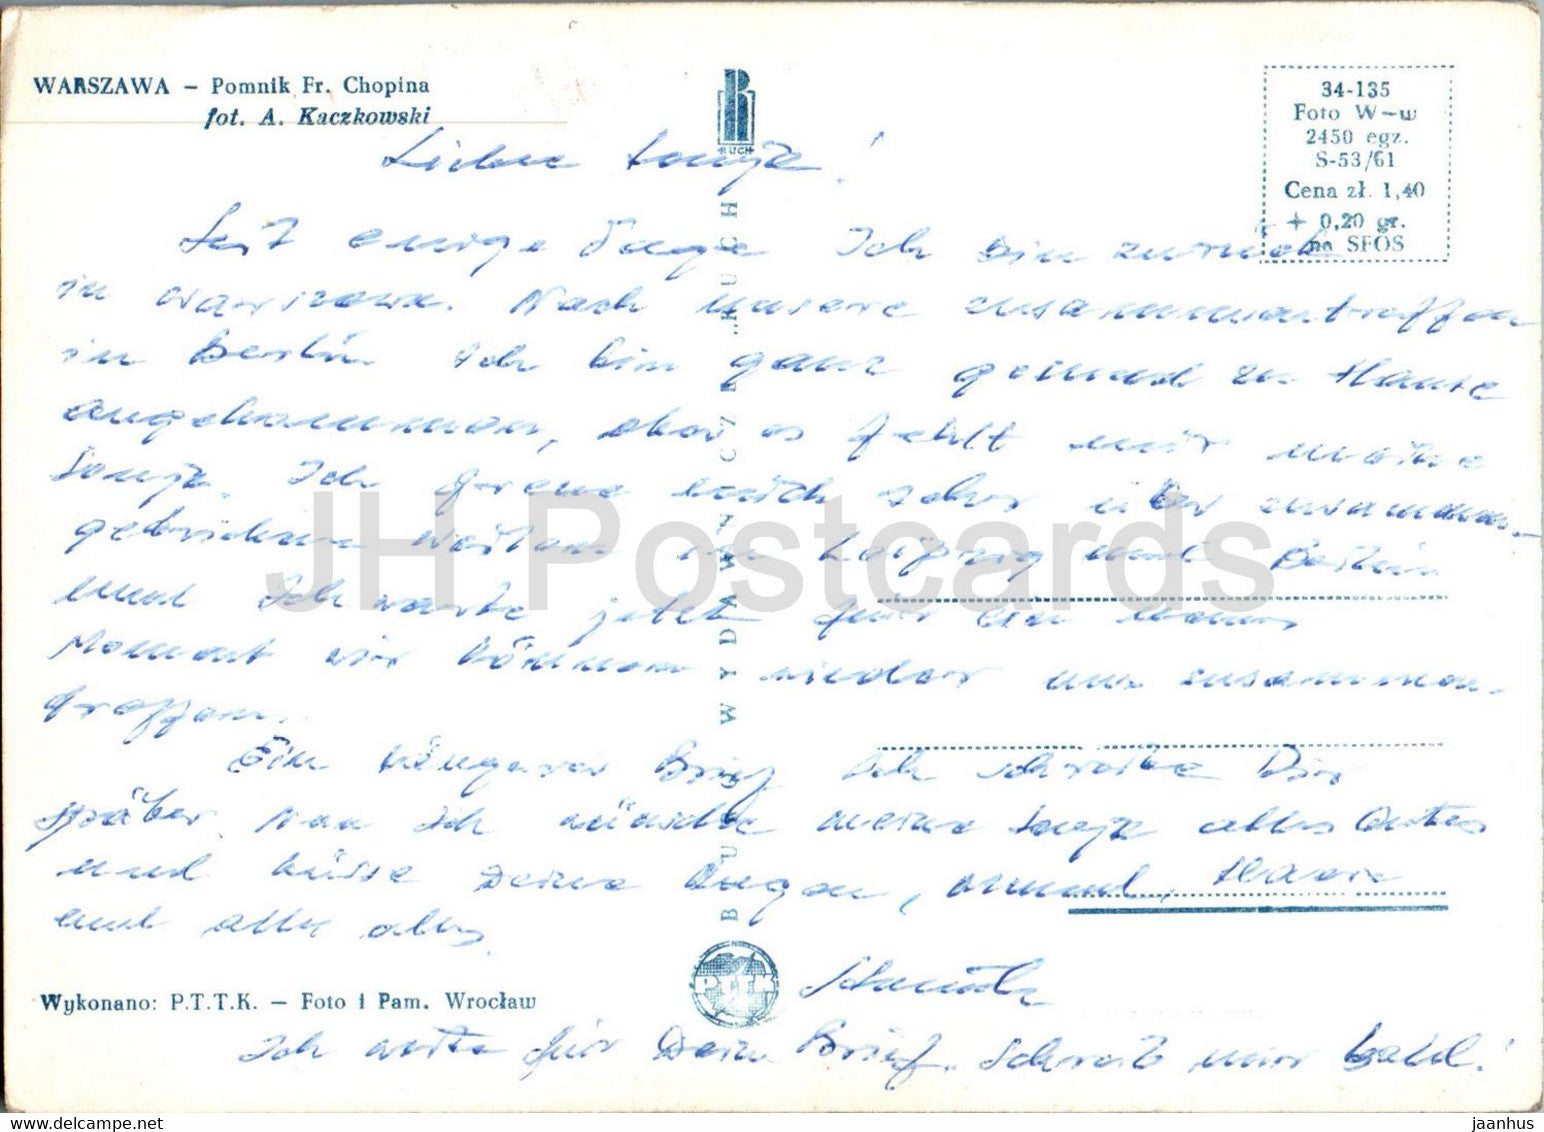 WARSZAWA – Pomnik Fr. Chopina
fot. A. Kaczkowski
RUCH
34-135
Foto W-w
2450 egz.
S-53/61
Cena zł. 1,40
+ 0,20 gr.
na SFOS
Liebe Sonja!
Seit einige Tage Ich bin zurück
in Warszawa. Nach unsere zusammentreffen
in Berlin ich bin ganz gesund zu Hause
angekommen, aber es fehlt mir meine
Sonja. Ich freue mich sehr über zusammen-
gebrichene in Leipzig und Berlin
und Ich warte jetzt für den
Moment wir können wieder uns zusammen-
treffen.
Ein Brief Ich schreibe Dir
später. Ich wünsche meine Sonja alles Gutes
und küsse Deine Augen, Mund, Haare
und alle alles.
Ich warte für Dein Brief. Schreib mir bald!
BIURO WYDAWNICZE „RUCH
PTTK
Wykonano: P.T.T.K. – Foto i Pam. Wrocław
JH Postcards
jaanhus
www.delcampe.net